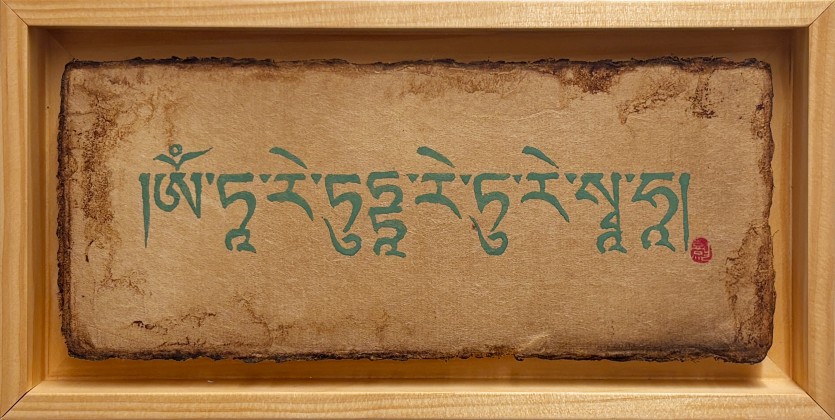 །ཨོཾ་ཏཱ་རེ་ཏུཏྟཱ་རེ་ཏུ་རེ་སྭཱ་ཧཱ།